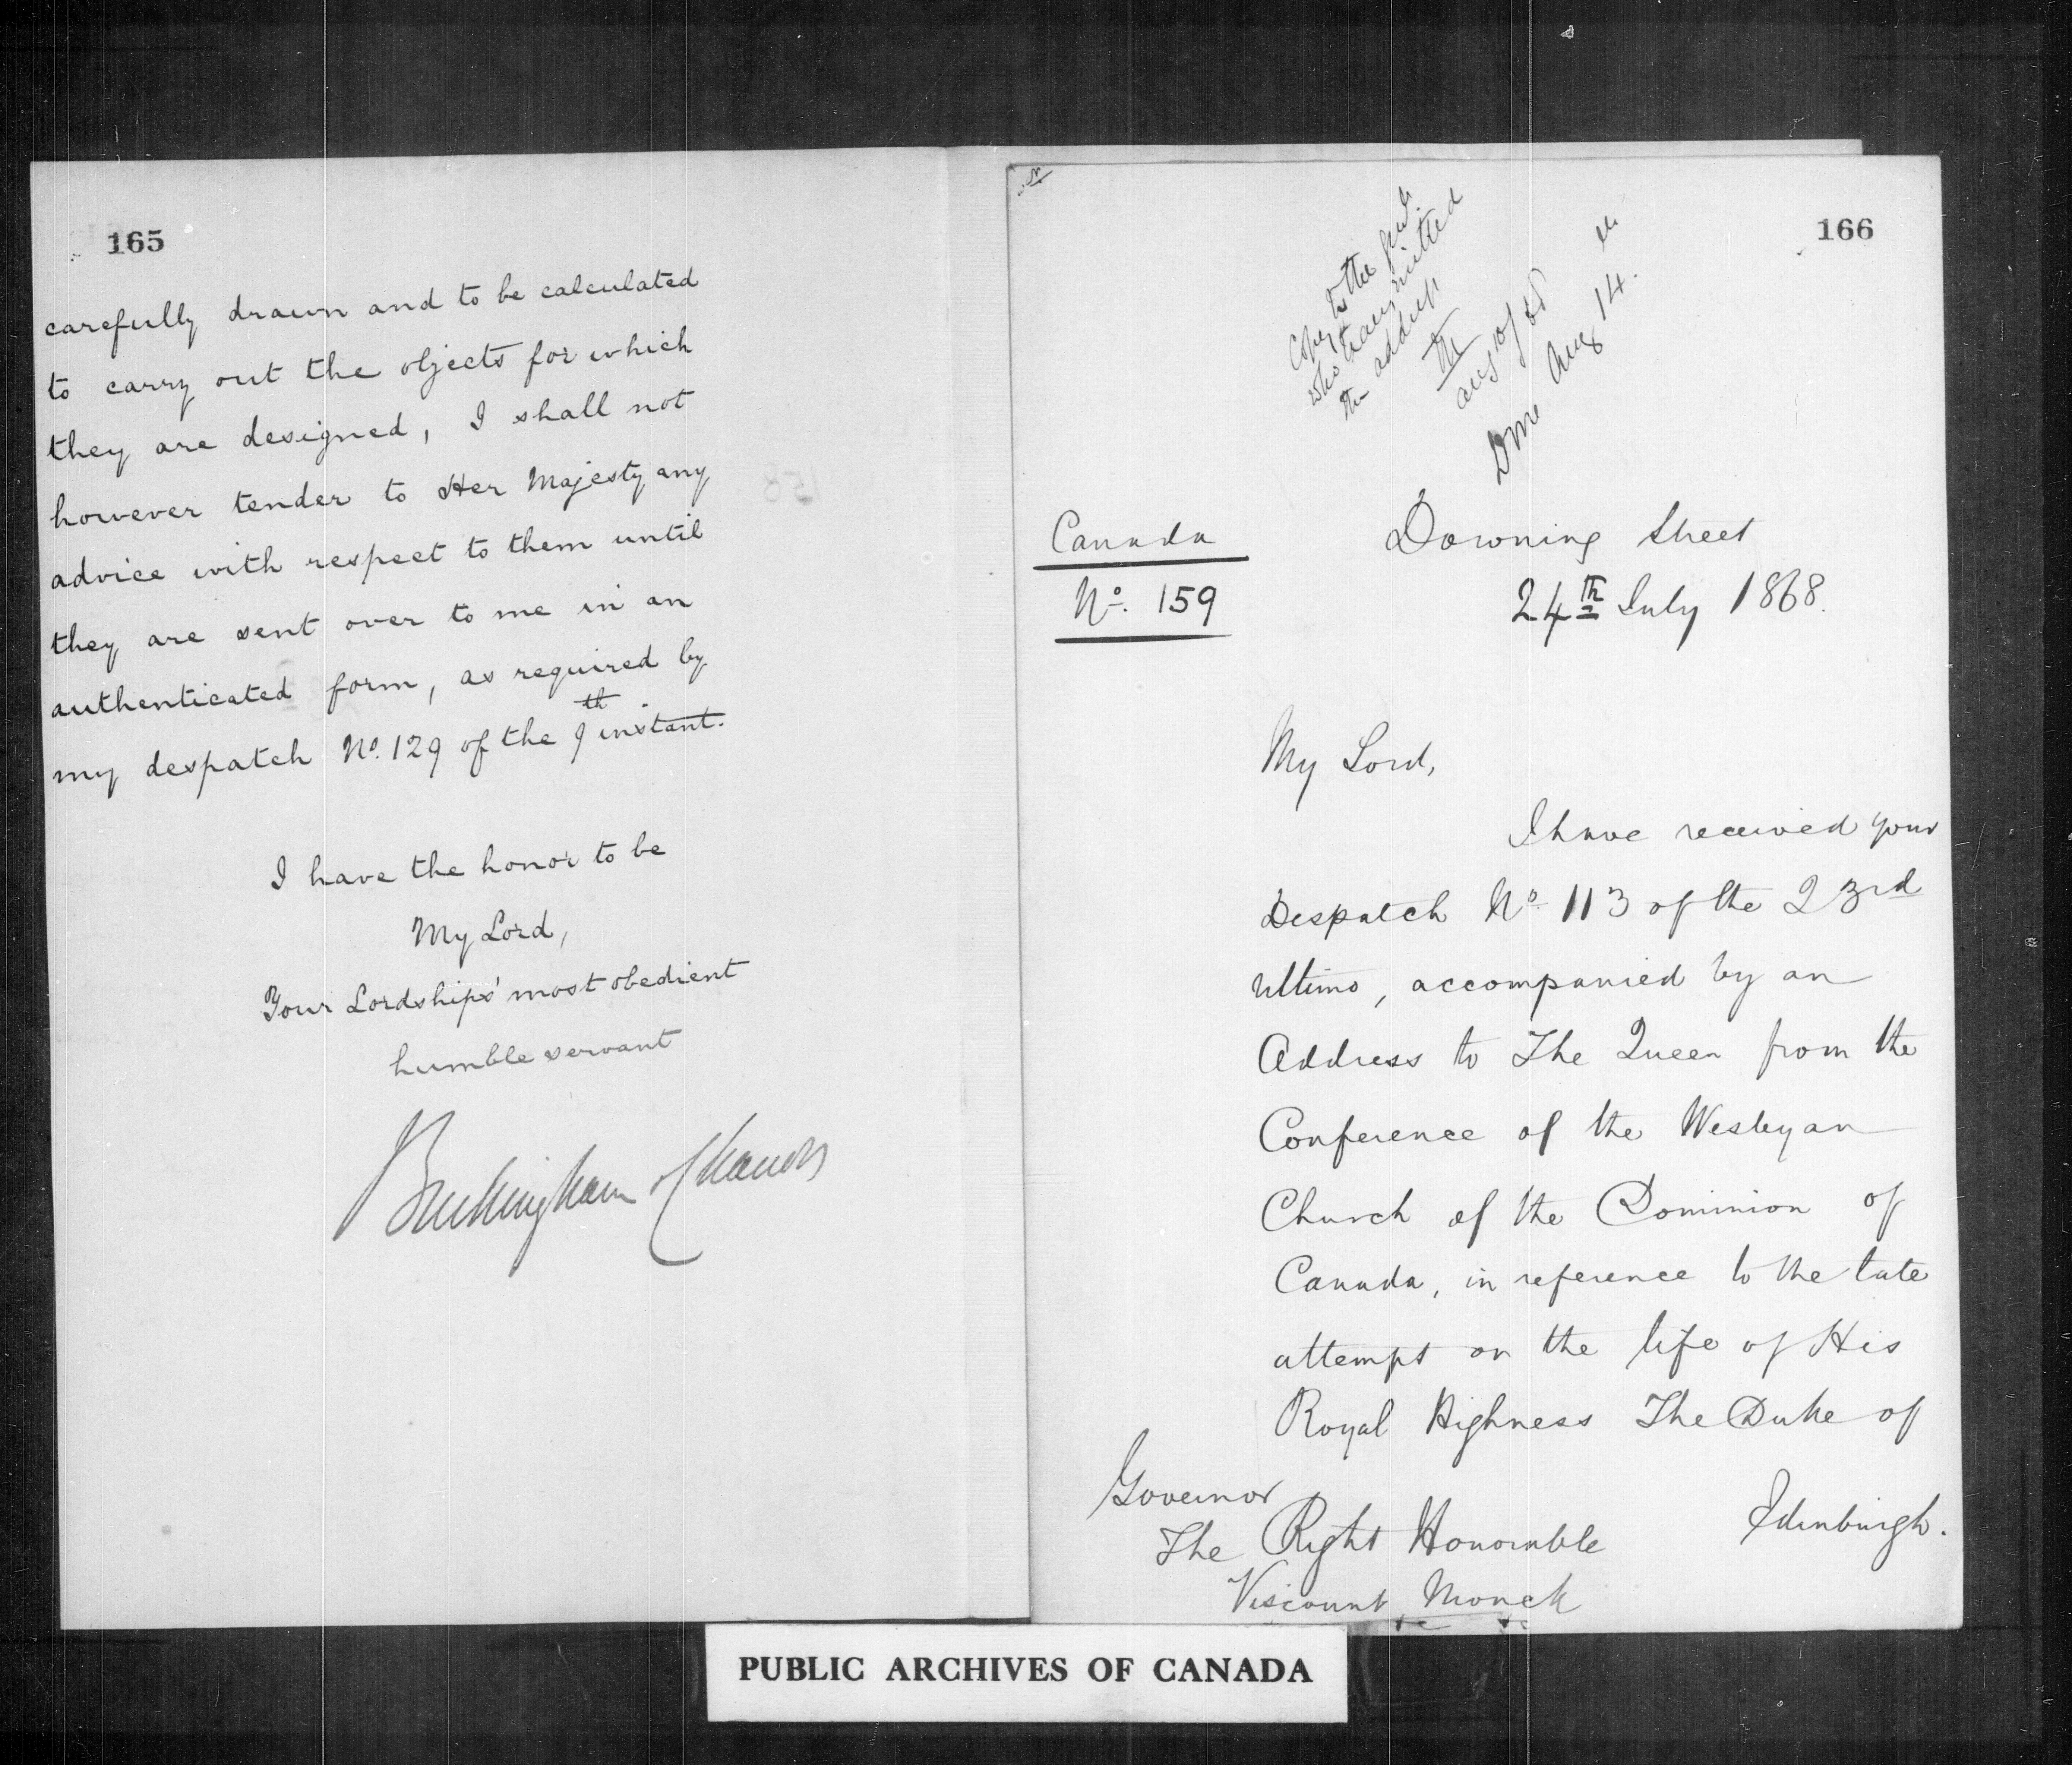 165
carefully drawn and to be calculated
to carry out the objects for which
they are designed, I shall not
however tender to Her Majesty any
advice with respect to them until
they are sent over to me in an
authenticated form, as required by
my despatch No. 129 of the 9th instant.
I have the honor to be
My Lord,
Your Lordships' most obedient
humble servant
Buckingham & Chandos
166
Copy to the
who transmitted
the address
Aug 10/68
Done Aug 14.
Canada
No. 159
Downing Street
24th July 1868.
My Lord,
I have received your
Despatch No. 113 of the 23rd
Ultimo, accompanied by an
Address to The Queen from the
Conference of the Wesleyan
Church of the Dominion of
Canada, in reference to the late
attempt on the life of His
Royal Highness The Duke of
Edinburgh.
Governor
The Right Honorable
Viscount Monck
PUBLIC ARCHIVES OF CANADA